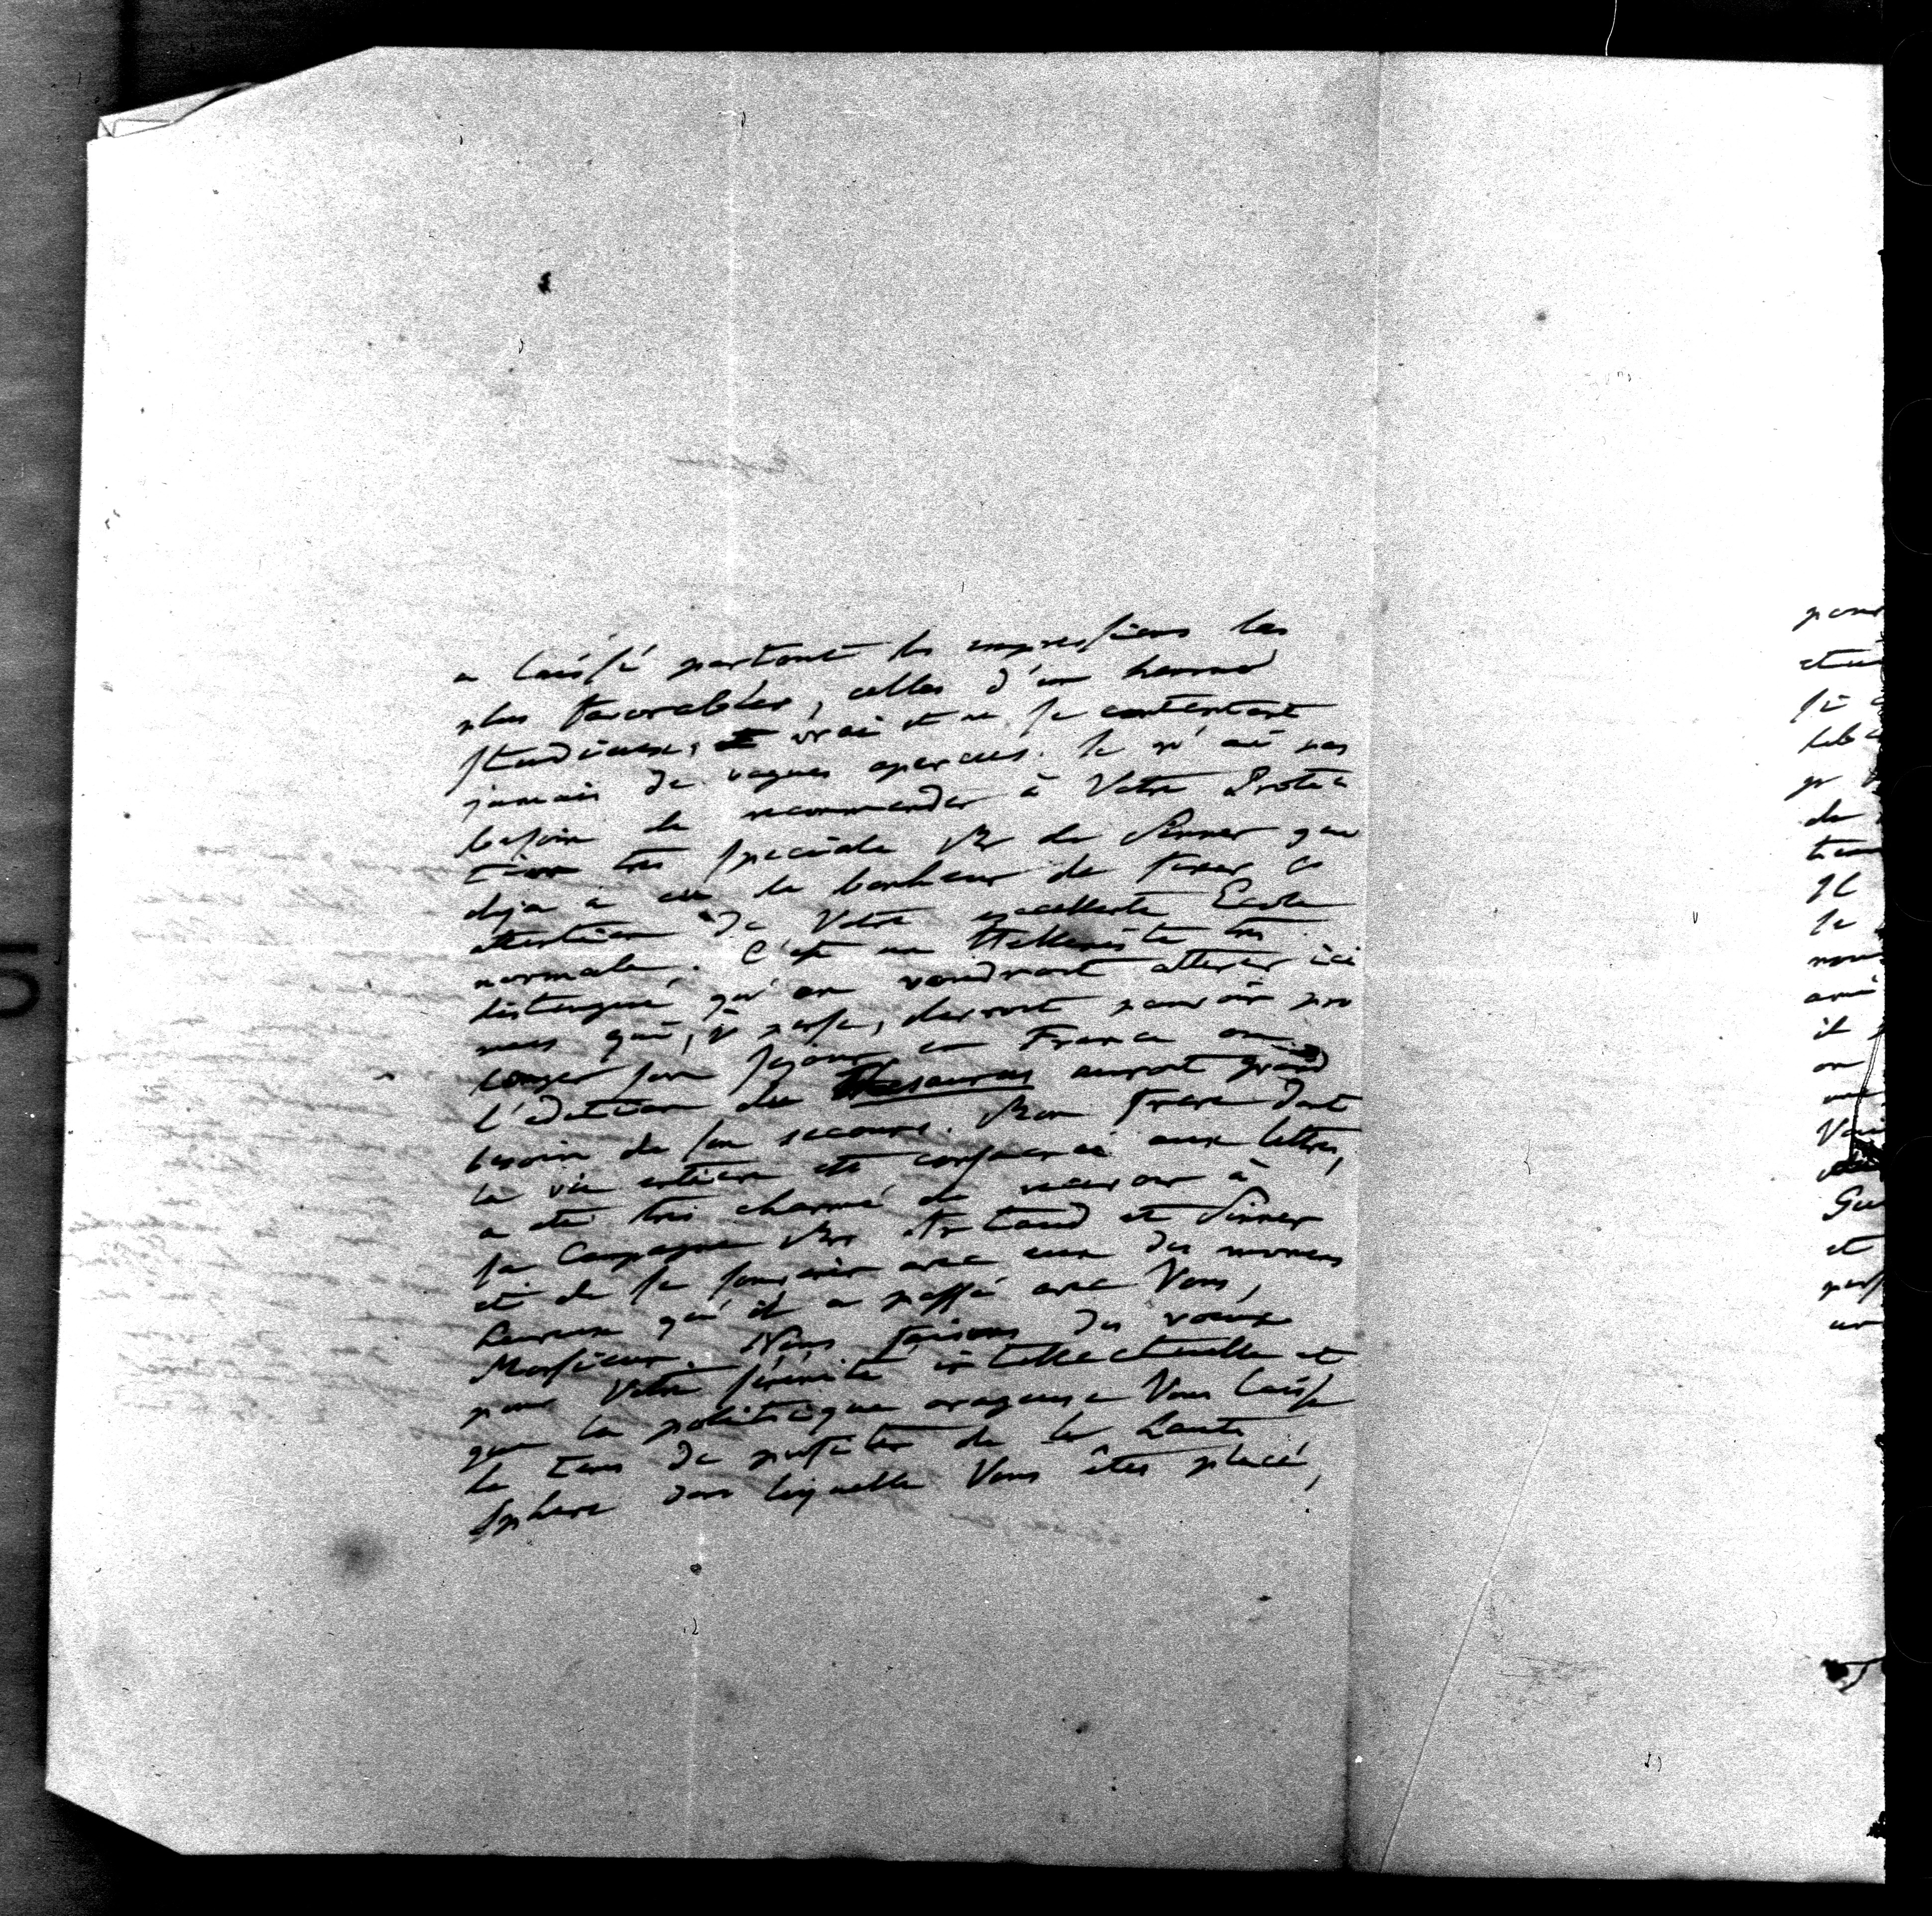 a laissé partout les impressions les
plus favorables, celles d'un homme
studieux, vrai et ne se contentant
jamais de vagues apercus. Je n'ai pas
besoin de recommander à Votre Protec
tion très speciale Mr de Sinner que
deja a eu le bonheur de fixer l'
attention de Votre excellente Ecole
normale. C'est un Helleniste très
distingué qu'on voudroit attirer ici
mais qui, je pense, devroit pouvoir pro
longer son sejour en France ou
l'edition du Thesaurus auroit grand
besoin de son secours. Mon frere dont
la vie entiere est consacrée aux lettres,
a eté très charmé de recevoir à
sa Campagne Mrs Artaud et Sinner
et de se souvenir avec eux des momens
heureux qu'il a passé avec Vous,
Monsieur. Nous faisons des voeux
pour Votre sérénité intellectuelle et
que la politique orageuse Vous laisse
le tems de profiter de la haute
Sphere dans laquelle Vous êtes placé,
pour
de
Il
le
il
on
et